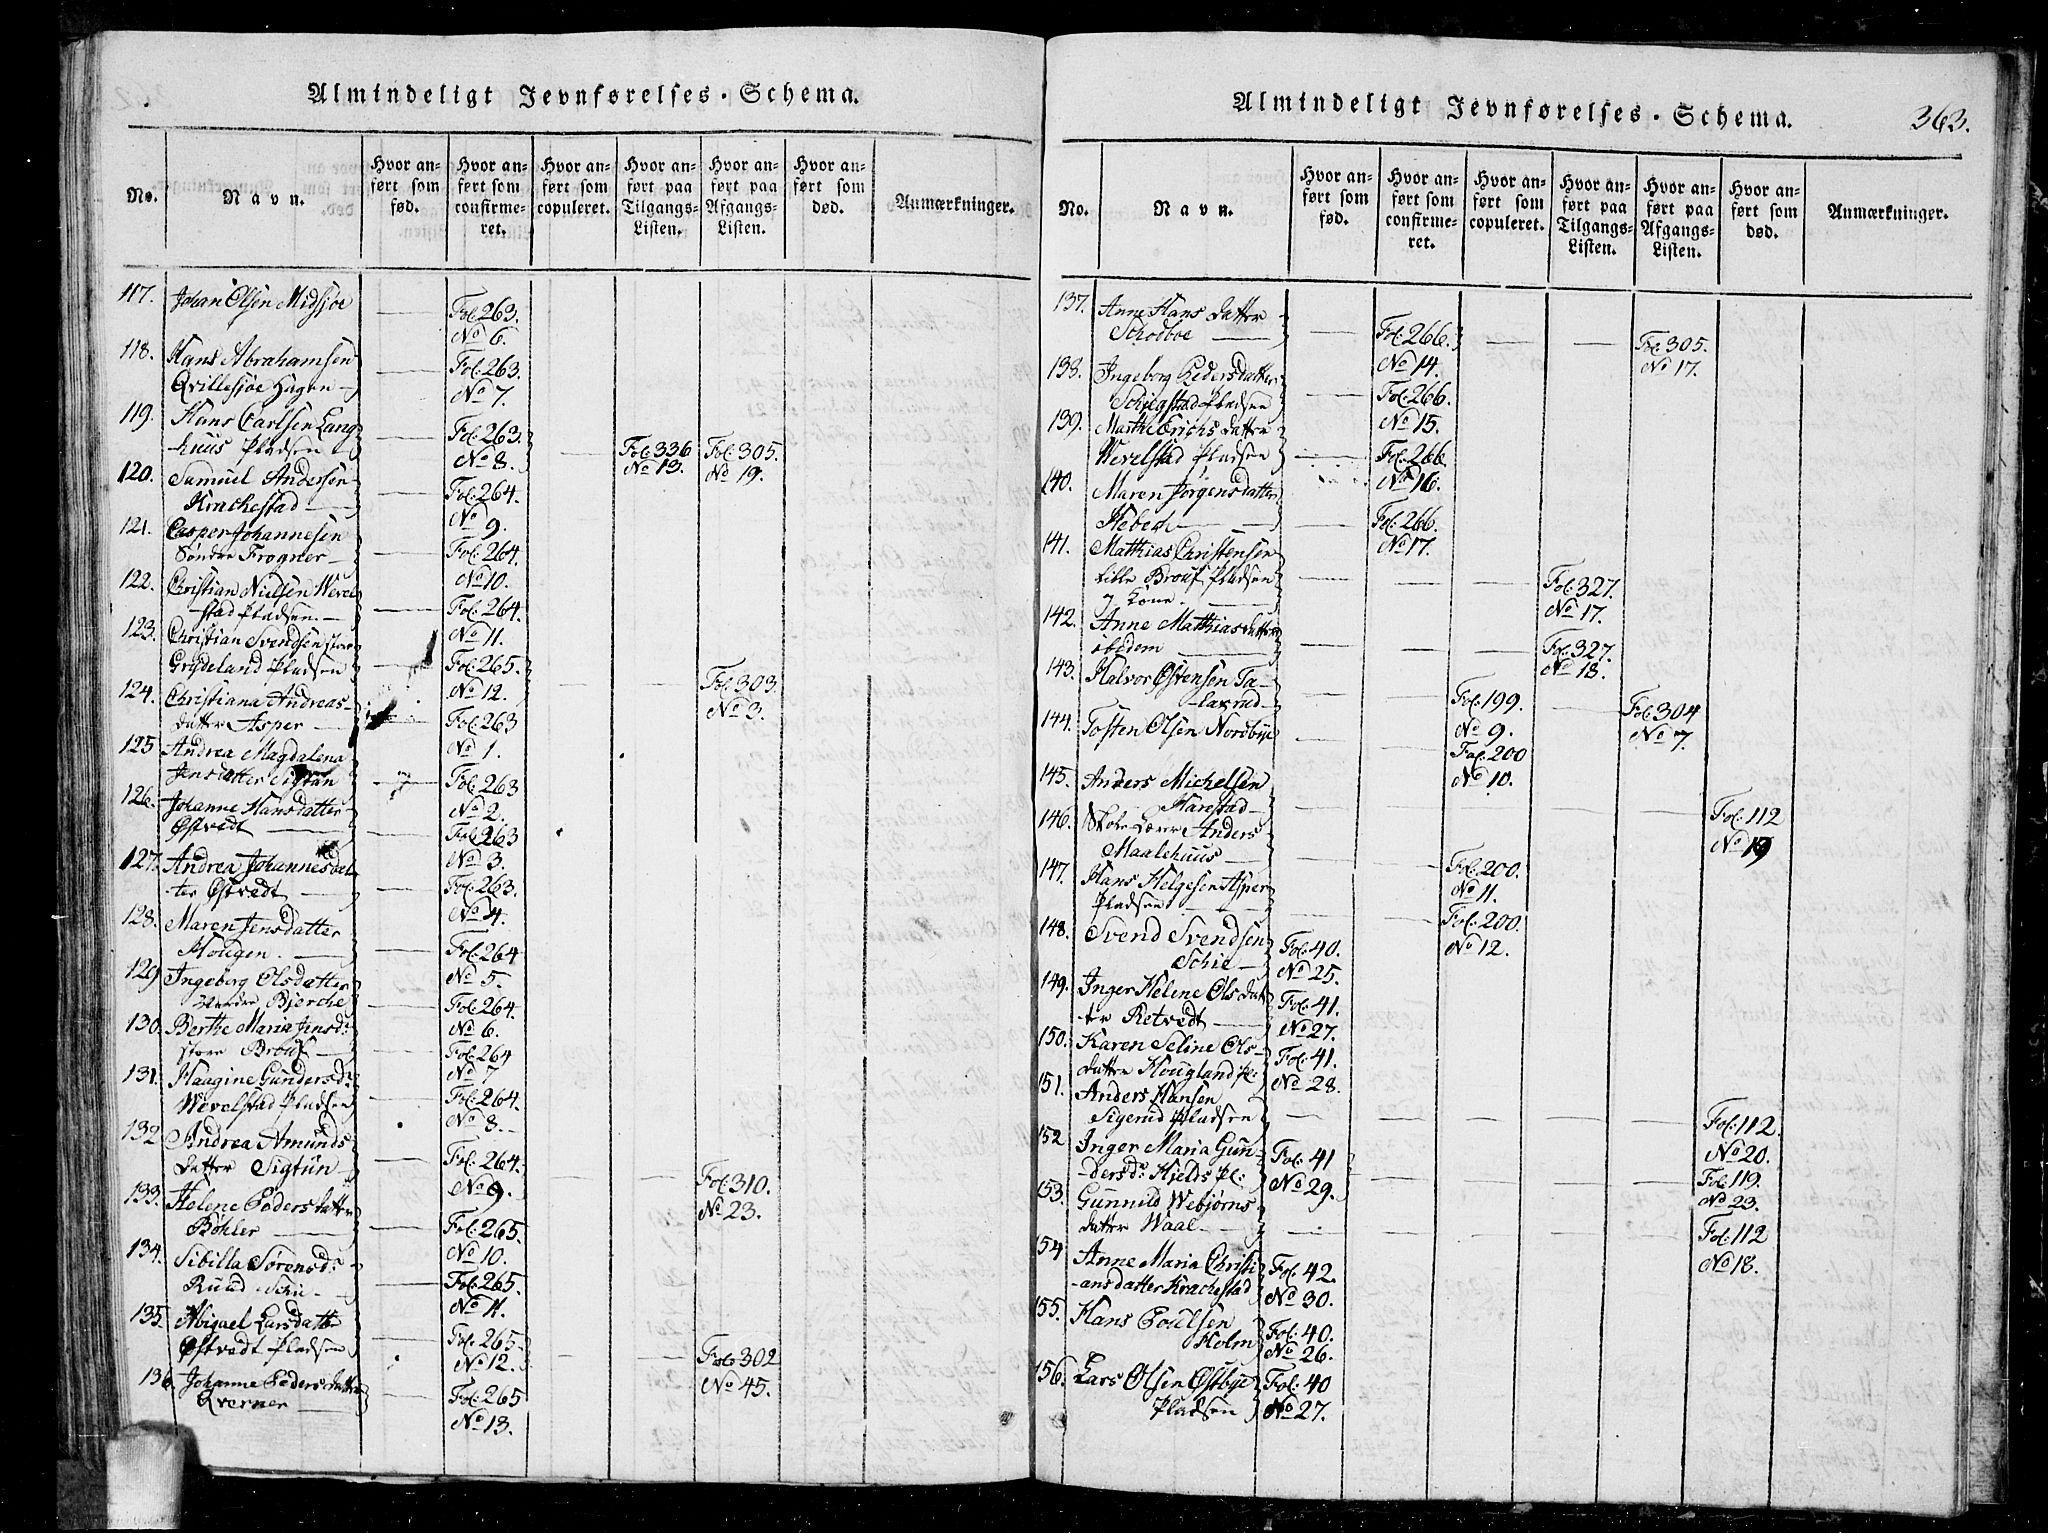 Almindeligt Jevnførelses-Schema.
No.
Navn.
Hvor anført som fød.
Hvor anført som confirmeret.
Hvor anført som copuleret.
Hvor anført paa Tilgangs-Listen.
Hvor anført paa Afgangs-Listen.
Hvor anført som død.
Anmærkninger.
117. Johan Olsen Midsjøe — Fol: 263. No 6.
118. Hans Abrahamsen
Qvillesjøe Hagen — Fol: 263. No 7.
119. Hans Carlsen Lang
huus Pladsen — Fol: 263. No 8. — Fol: 336 No 13. Fol: 305. No 19.
120. Samuel Andersen
Krachestad — Fol: 264. No 9.
121. Casper Johannesen
Søndre Frogner — Fol: 264. No 10.
122. Christian Nielsen Wevel
stad Pladsen. — Fol: 264. No 11.
123. Christian Svendsen store
Grydeland Pladsen — Fol: 265. No 12. — — Fol: 303. No 3.
124. Christiana Andreas-
datter Asper — Fol: 263 No 1.
125 Andrea Magdalena
Jensdatter Sigtun — Fol: 263 No 2.
126. Johanne Hansdatter
Østvedt — Fol: 263 No 3.
127. Andrea Johannesdat
ter Østvedt — Fol: 263. No 4.
128. Maren Jensdatter
Hougen. — Fol: 264 No 5.
129 Ingeborg Olsdatter
Bjerche — Fol: 264. No 6.
130. Berthe Maria Jensd:
store Brouf — Fol: 264 No 7
131. Haagine Gundersd:
Wevelstad Pladsen — Fol: 264. No 8.
132 Andrea Amunds
datter Sigtun — Fol: 264. No 9. — — Fol: 310. No 23.
133. Helene Peders datter
Bøhler — Fol: 265. No 10.
134. Sibilla Sørensd:
Ruud Schie — Fol: 265. No 11.
135. Abigael Larsdatter
Østvedt Pladsen — Fol: 265 No 12. — — Fol: 302 No 45.
136 Johanne Peders datter
Qverner — Fol: 265 No 13.
Almindeligt Jevnførelses-Schema.
363.
No.
Navn.
Hvor anført som fød.
Hvor anført som confirmeret.
Hvor anført som copuleret.
Hvor anført paa Tilgangs-Listen.
Hvor anført paa Afgangs-Listen.
Hvor anført som død.
Anmærkninger.
137. Anne Hans datter
Schodboe — Fol: 266. No 14. — — Fol: 305. No 17.
138. Ingeborg Pedersdatter
Pladsen — Fol: 266. No 15.
139. Marthe Erichs datter
Wevelstad Pladsen — Fol: 266 No 16.
140. Maren Jørgensdatter
— Fol: 266. No 17.
141. Matthias Christensen
Lille Brouf Pladsen
og Kone. — — — Fol: 327. No 17.
142. Anne Matthiasdatter
ibidem — — — Fol: 327. No 18.
143. Halvor Østensen Ta-
— — Fol: 199. No 9. — Fol: 304 No 7.
144. Tosten Olsen Nordbye — — Fol: 200 No 10.
145. Anders Michelsen
Harestad — — — — — Fol: 112 No 19
146. Skole Lærer Anders
Maalehuus — — Fol: 200. No 11.
147. Hans Helgesen Asper
Pladsen — — Fol: 200. No 12.
148. Svend Svendsen
Schie — Fol: 40. No 25.
149. Inger Helene Ols dat
ter Retvedt — Fol: 41. No 27.
150. Karen Seline Ols-
datter Hougland pl: Fol: 41. No 28.
151. Anders Hansen
Sigerud Pladsen — — — — — Fol: 112. No 20.
152 Inger Maria Gun-
dersd: Hjelds pl: Fol: 41 No 29. Fol: 119. No 23.
153. Gunnild Webjørns
datter Waal — — — — — Fol: 112 No 18.
154 Anne Maria Christi
ansdatter Krachestad Fol: 42. No 30.
155. Hans Poulsen
Holm Fol: 40. No 26.
156. Lars Olsen Østbye
Pladsen Fol: 40 No 27.